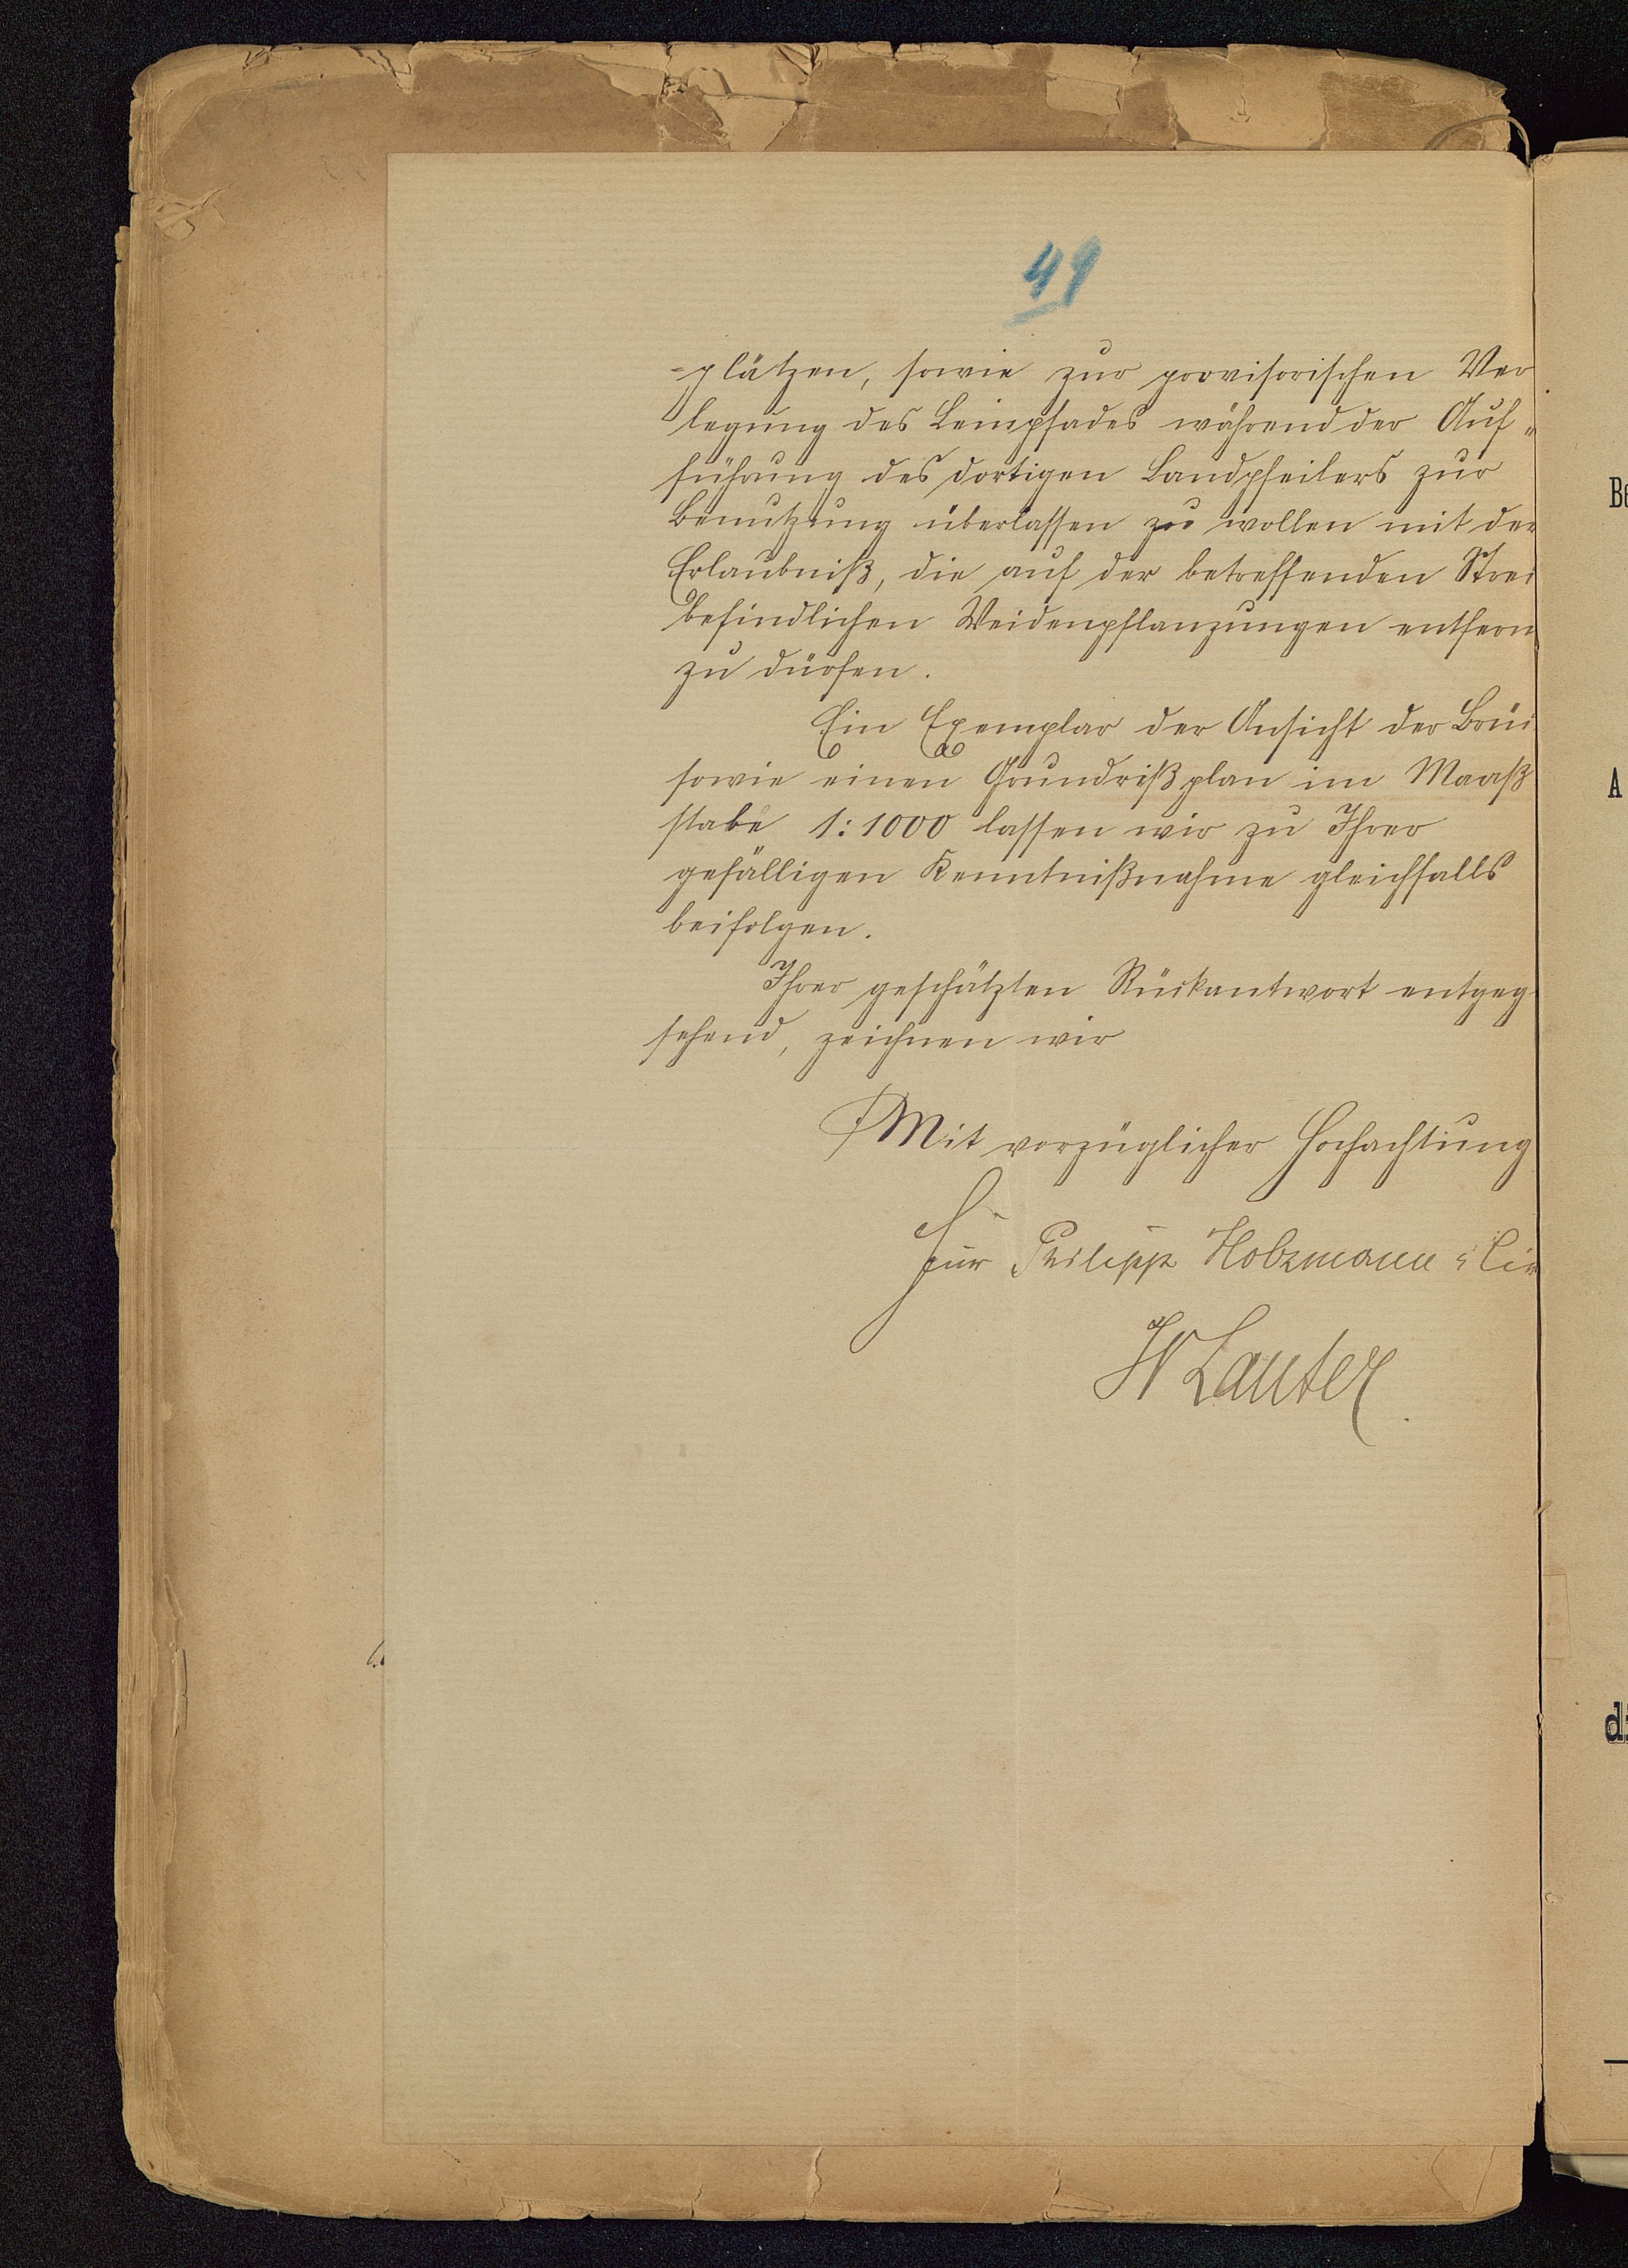 49
-plätzen, sowie zur provisorischen Ver
legung des Leinpfades während der Auf„
führung des dortigen Landpfeilers zur
Benutzung überlassen zu wollen mit der
Erlaubniß, die auf der betreffenden Stre
befindlichen Weidenpflanzungen entfern
zu dürfen.
Ein Exemplar der Ansicht der Brü
sowie einen Grundrißplan im Maaß
stabe 1:1000 lassen wir zu Ihrer
gefälligen Kenntnißnahme gleichfalls
beifolgen.
Ihrer geschätzten Rückantwort entgeg
sehend, zeichnen wir
Mit vorzüglicher Hochachtung
Für Philipp Holzmann & Cie
W Lauter
Be
A
di